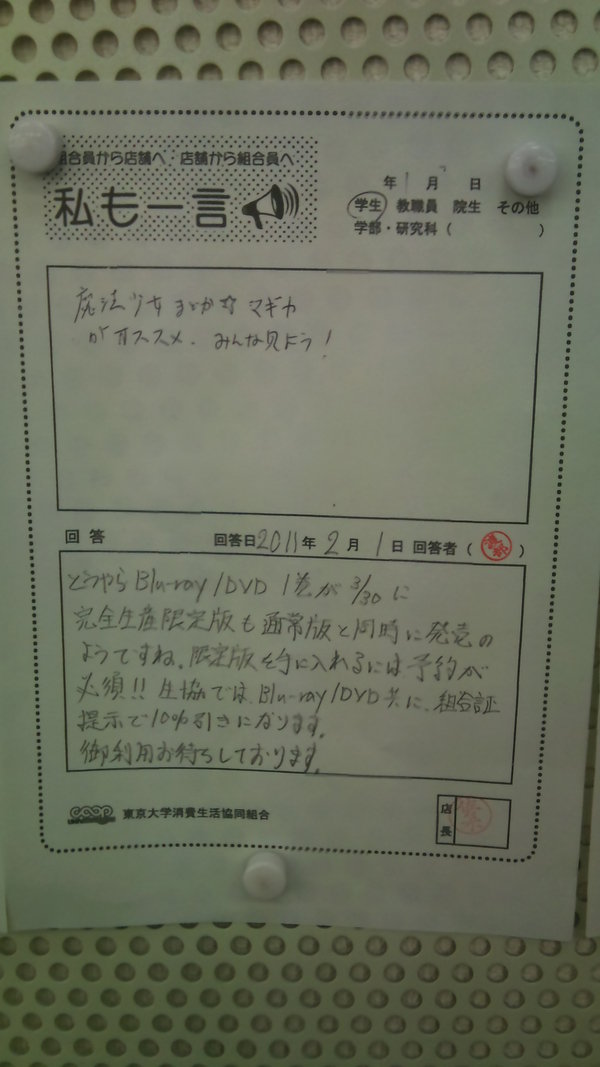 組合員から店舗へ・店舗から組合員へ
私も一言
年 1月 日
学生 教職員 院生 その他
学部・研究科( )
魔法少女まどか☆マギカ
がオススメ。みんな見よう!
回答
回答日2011年2月1日 回答者( )
どうやらBlu-ray/DVD 1巻が3/30に
完全生産限定版も通常版と同時に発売の
ようですね。限定版を手に入れるには予約が
必須!! 生協では、Blu-ray/DVD共に、組合証
提示で10%引きになります。
御利用お待ちしております。
coop
東京大学消費生活協同組合
店長